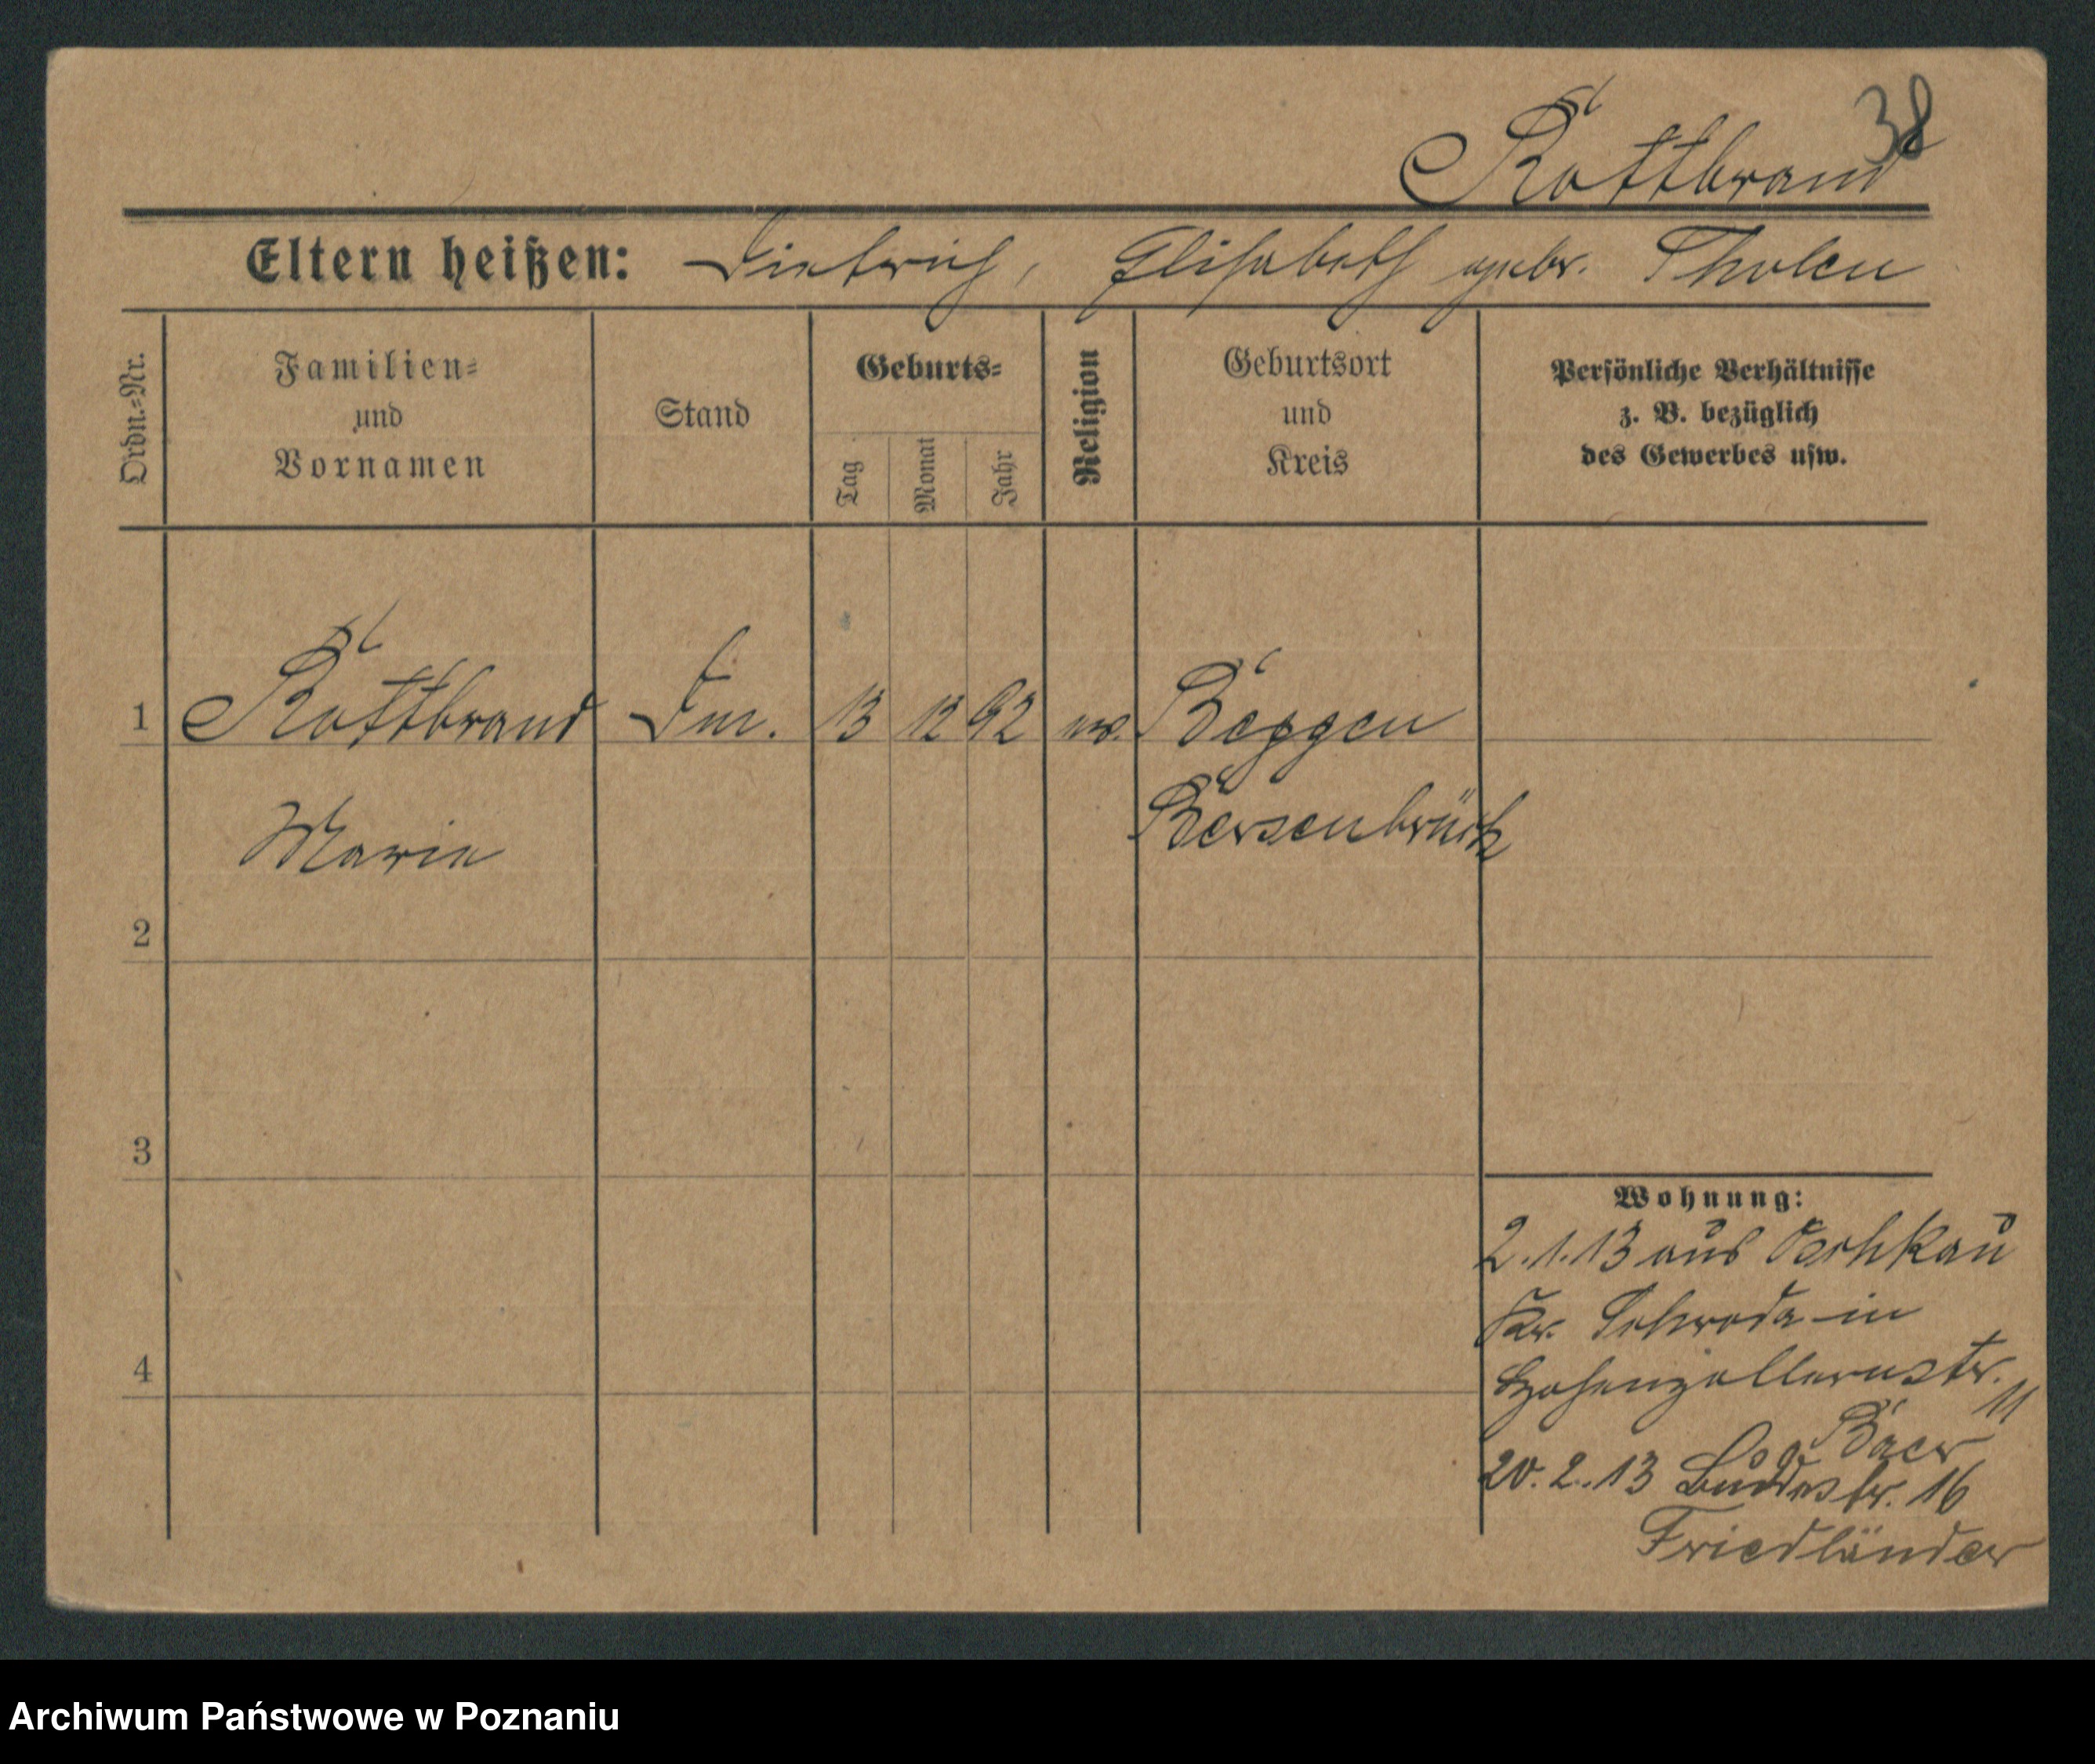 38
Rottbrand
Eltern heißen: Dietrich, Elisabeth gebr. Tholen
Ordn.-Nr.
Familien-
und
Vornamen
Stand
Geburts-
Tag
Monat
Jahr
Religion
Geburtsort
und
Kreis
Persönliche Verhältnisse
z. B. bezüglich
des Gewerbes usw.
1 Rottbrand 13 12 92 Beggen
Bersenbrück
Marie
2
3
4
Wohnung:
2.1.13 aus
Kr. Schroda in
Hohenzollernstr.
11
Baer
20.2.13 16
Friedländer
Archiwum Państwowe w Poznaniu